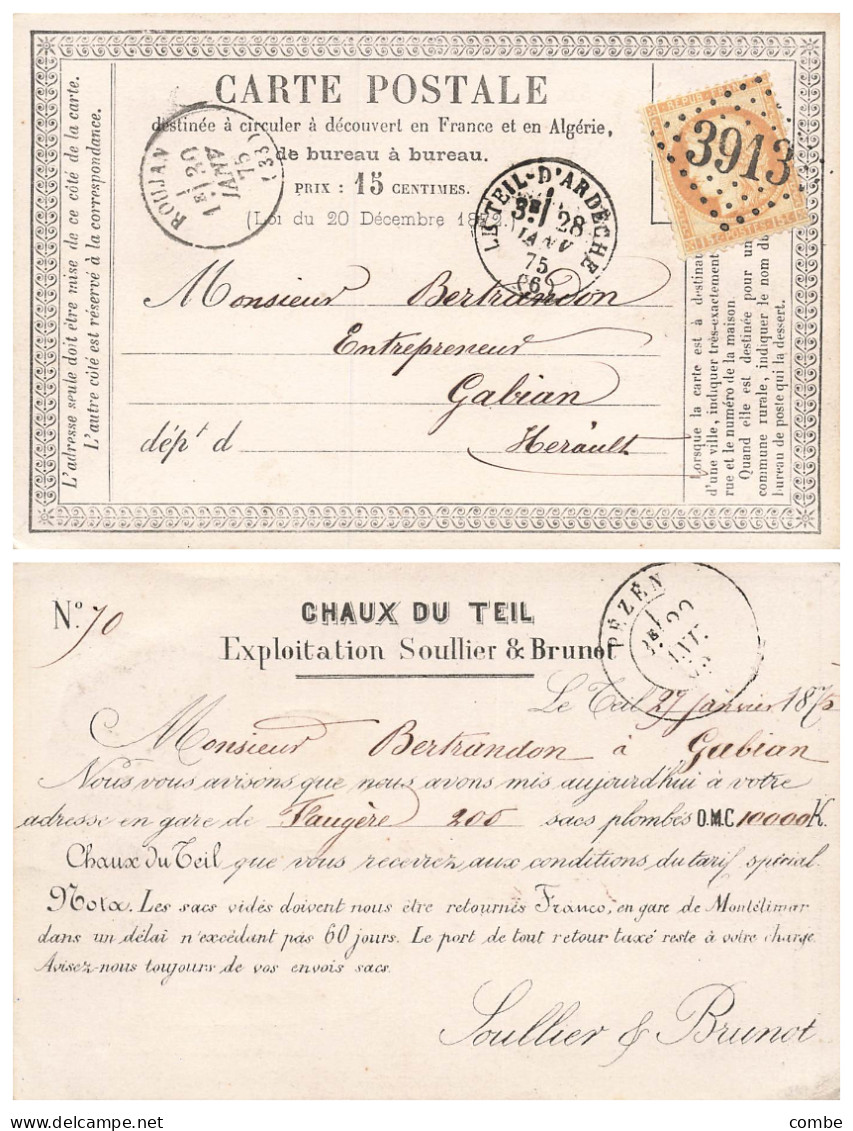 CARTE POSTALE
destinée à circuler à découvert en France et en Algérie,
de bureau à bureau.
PRIX : 15 CENTIMES.
(Loi du 20 Décembre 1872
L'adresse seule doit être mise de ce côté de la carte.
L'autre côté est réservé à la correspondance.
ROUJAN
1E 30
JANV
75
(33)
LE TEIL-D'ARDÈCHE
3E 28
JANV
75
(6)
REPUB
3913
15c POSTES 15c
Monsieur Bertrandon
Entrepreneur
Gabian
dépt d Herault
Lorsque la carte est à destinat
d'une ville, indiquer très-exactement
rue et le numéro de la maison.
Quand elle est destinée pour un
commune rurale, indiquer le nom du
bureau de poste qui la dessert.
No. 70
CHAUX DU TEIL
Exploitation Soullier & Brunot
PÉZÉN
Le Teil 27 janvier 1875
Monsieur Bertrandon à Gabian
Nous vous avisons que nous avons mis aujourd'hui à votre
adresse en gare de Faugère 200 sacs plombés O.M.C 10000 K.
Chaux du Teil que vous recevrez aux conditions du tarif spécial.
Nota. Les sacs vidés doivent nous être retournés Franco, en gare de Montélimar
dans un délai n'excédant pas 60 jours. Le port de tout retour taxé reste à votre charge.
Avisez-nous toujours de vos envois sacs.
Soullier & Brunot
combe